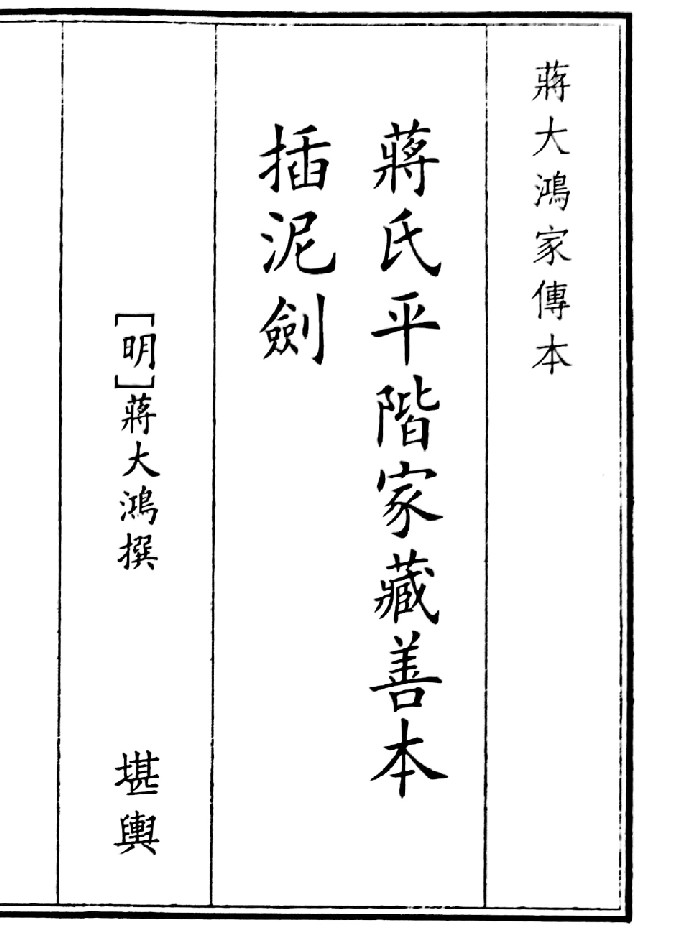 蔣大鴻家傳本
蔣氏平階家藏善本
插泥劍
[明]蔣大鴻撰
堪輿